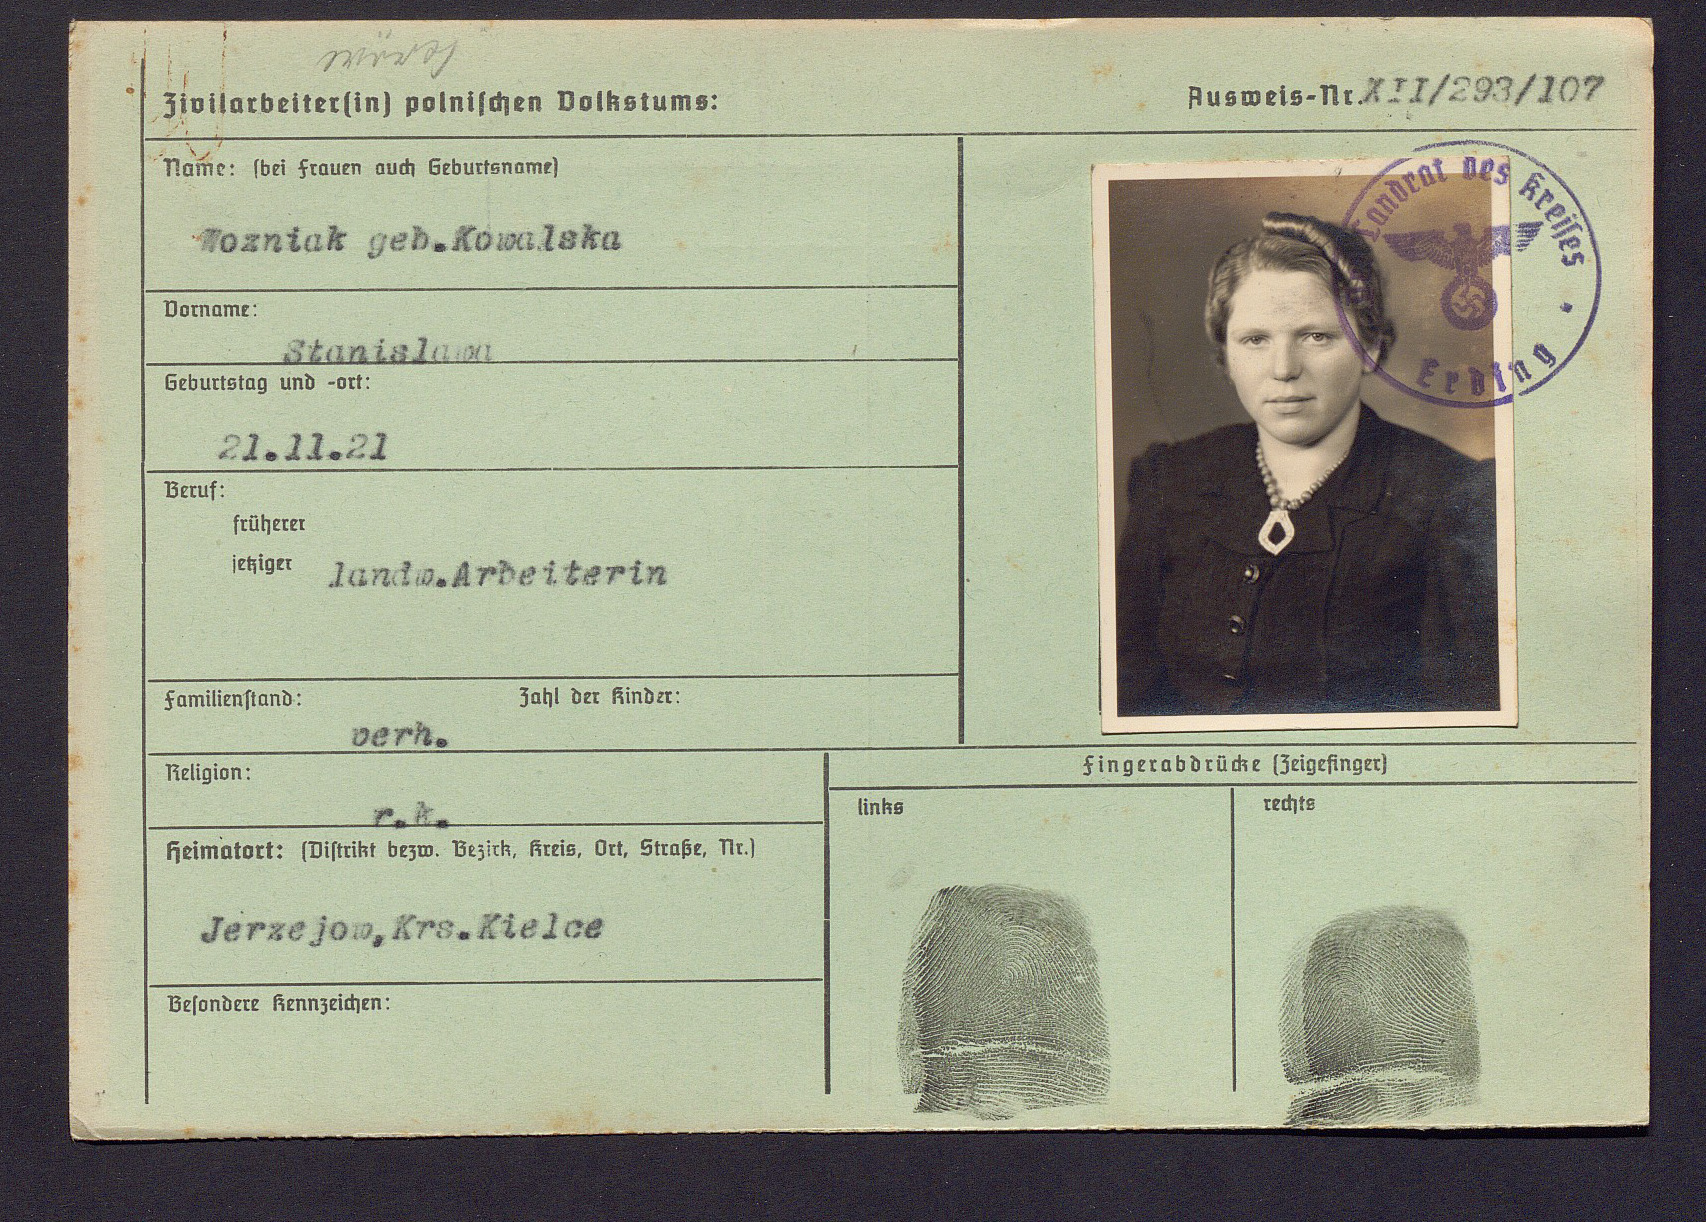 Zivilarbeiter(in) polnischen Volkstums:
Ausweis-Nr. XII/293/107
Name: (bei Frauen auch Geburtsname)
Wozniak geb.Kowalska
Vorname:
Stanislawa
Geburtstag und -ort:
21.11.21
Beruf:
früherer
jetziger landw.Arbeiterin
Familienstand: Zahl der Kinder:
verh.
Religion:
r.k.
Heimatort: (Distrikt bezw. Bezirk, Kreis, Ort, Straße, Nr.)
Jerzejow,Krs.Kielce
Besondere Kennzeichen:
Landrat des Kreises
Erding
Fingerabdrücke (Zeigefinger)
links rechts